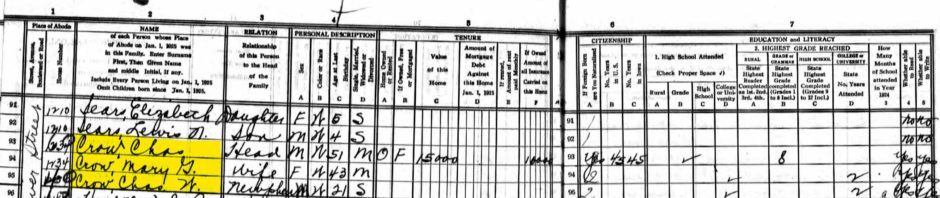 1 2 3 4 5 6 7
Place of Abode NAME RELATION PERSONAL DESCRIPTION TENURE CITIZENSHIP EDUCATION AND LITERACY
of each Person whose Place of Abode on Jan. 1, 1925 was in this Family. Enter Surname First, Then Given Name and middle Initial, if any.
Include Every Person Living on Jan. 1, 1925
Omit Children born since Jan. 1, 1925.
Relationship of this Person to the Head of the Family
House Number
Sex
Color or Race
Age at Last Birthday
Single, Married, Widowed or Divorced
Home Owned or Rented
If Owned, Free or Mortgaged
Value of this Home
Amount of Mortgage Debt Against this Home Jan. 1, 1925
If Owned Amount of Insurance Carried on this Home
If Foreign Born Are you Naturalized
No. Years in U.S.
No. Years in Iowa
1. High School Attended
(Check Proper Space ✓)
Rural Grade High School College or University
2. HIGHEST GRADE REACHED
RURAL GRADE or GRAMMAR HIGH SCHOOL COLLEGE or UNIVERSITY
State Highest Grade Completed
State No. Years Attended
How Many Months of School attended in Year 1924
Whether able to read
A B C D A B C D E F A B C A B C D A B C D
91 1210 Sears, Elizabeth Daughter F W 5 S 91 no no
92 1210 Sears, Lewis Son M W 4 S 92 no no
93 Crow, Chas Head M W 51 M O F 15000 10000 93 yes 45 45 ✓ 8 yes yes
94 1234 Crow, Mary G. Wife F W 43 M 94 ✓ 2 yes
95 Crow, Chas W. Nephew M W 21 S 95 ✓ 2 yes
96 96